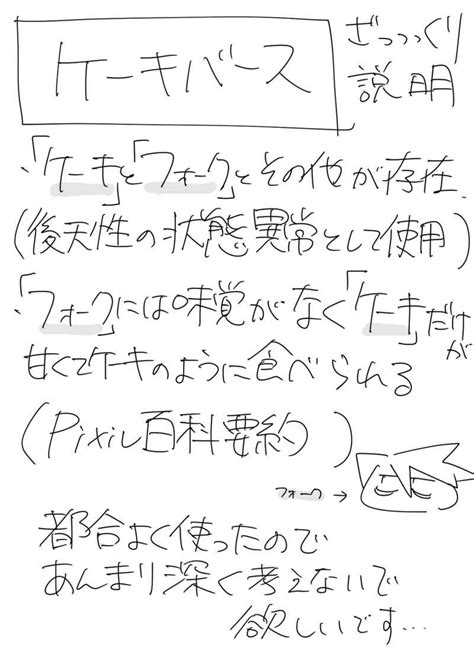 ケーキバース
ざっっっくり
説明
・「ケーキ」と「フォーク」とその他が存在
(後天性の状態異常として使用)
・「フォーク」には味覚がなく「ケーキ」だけが
甘くてケーキのように食べられる
(Pixiv百科要約)
フォーク→
都合よく使ったので
あんまり深く考えないで
欲しいです…